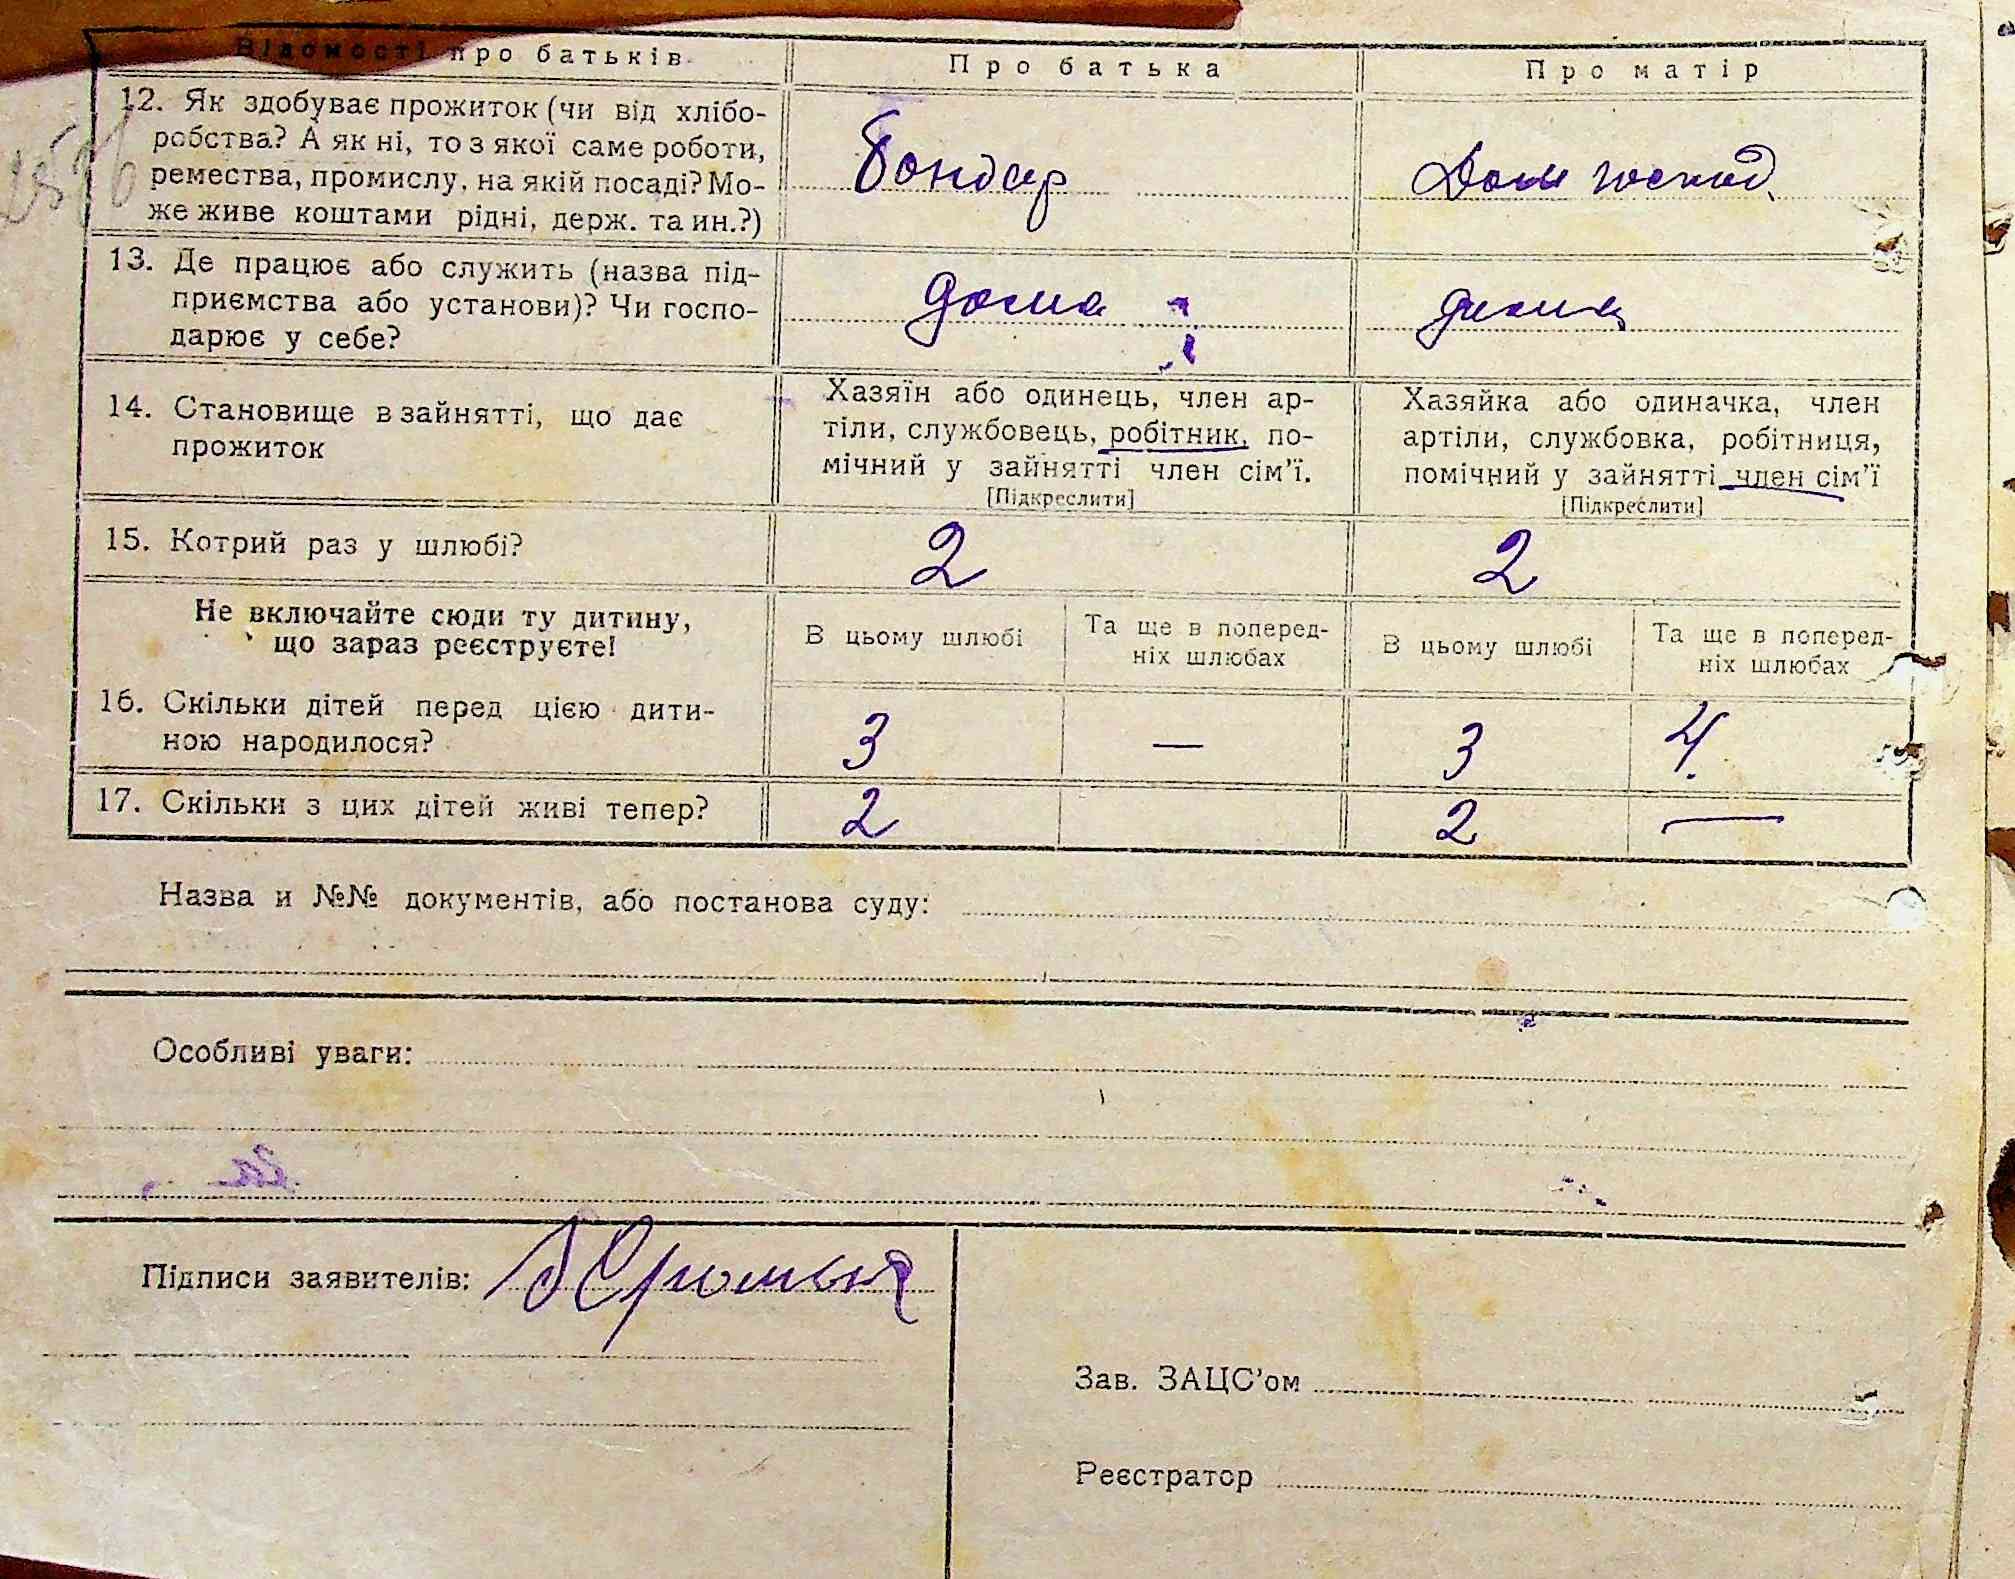 Відомості про батьків
Про батька
Про матір
12. Як здобуває прожиток (чи від хлібо-
робства? А як ні, то з якої саме роботи,
ремества, промислу, на якій посаді? Мо-
же живе коштами рідні, держ. та ин.?)
Бондар
Дом господ.
13. Де працює або служить (назва під-
приємства або установи)? Чи госпо-
дарює у себе?
дома
дома
14. Становище в зайнятті, що дає
прожиток
Хазяїн або одинець, член ар-
тіли, службовець, робітник, по-
мічний у зайнятті член сім'ї.
[Підкреслити]
Хазяйка або одиначка, член
артіли, службовка, робітниця,
помічний у зайнятті член сім'ї
[Підкреслити]
15. Котрий раз у шлюбі?
2
2
Не включайте сюди ту дитину,
що зараз реєструєте!
В цьому шлюбі
Та ще в поперед-
ніх шлюбах
В цьому шлюбі
Та ще в поперед-
ніх шлюбах
16. Скільки дітей перед цією дити-
ною народилося?
3
—
3
4.
17. Скільки з цих дітей живі тепер?
2
2
—
Назва и №№ документів, або постанова суду:
Особливі уваги:
Підписи заявителів:
Зав. ЗАЦС'ом
Реєстратор